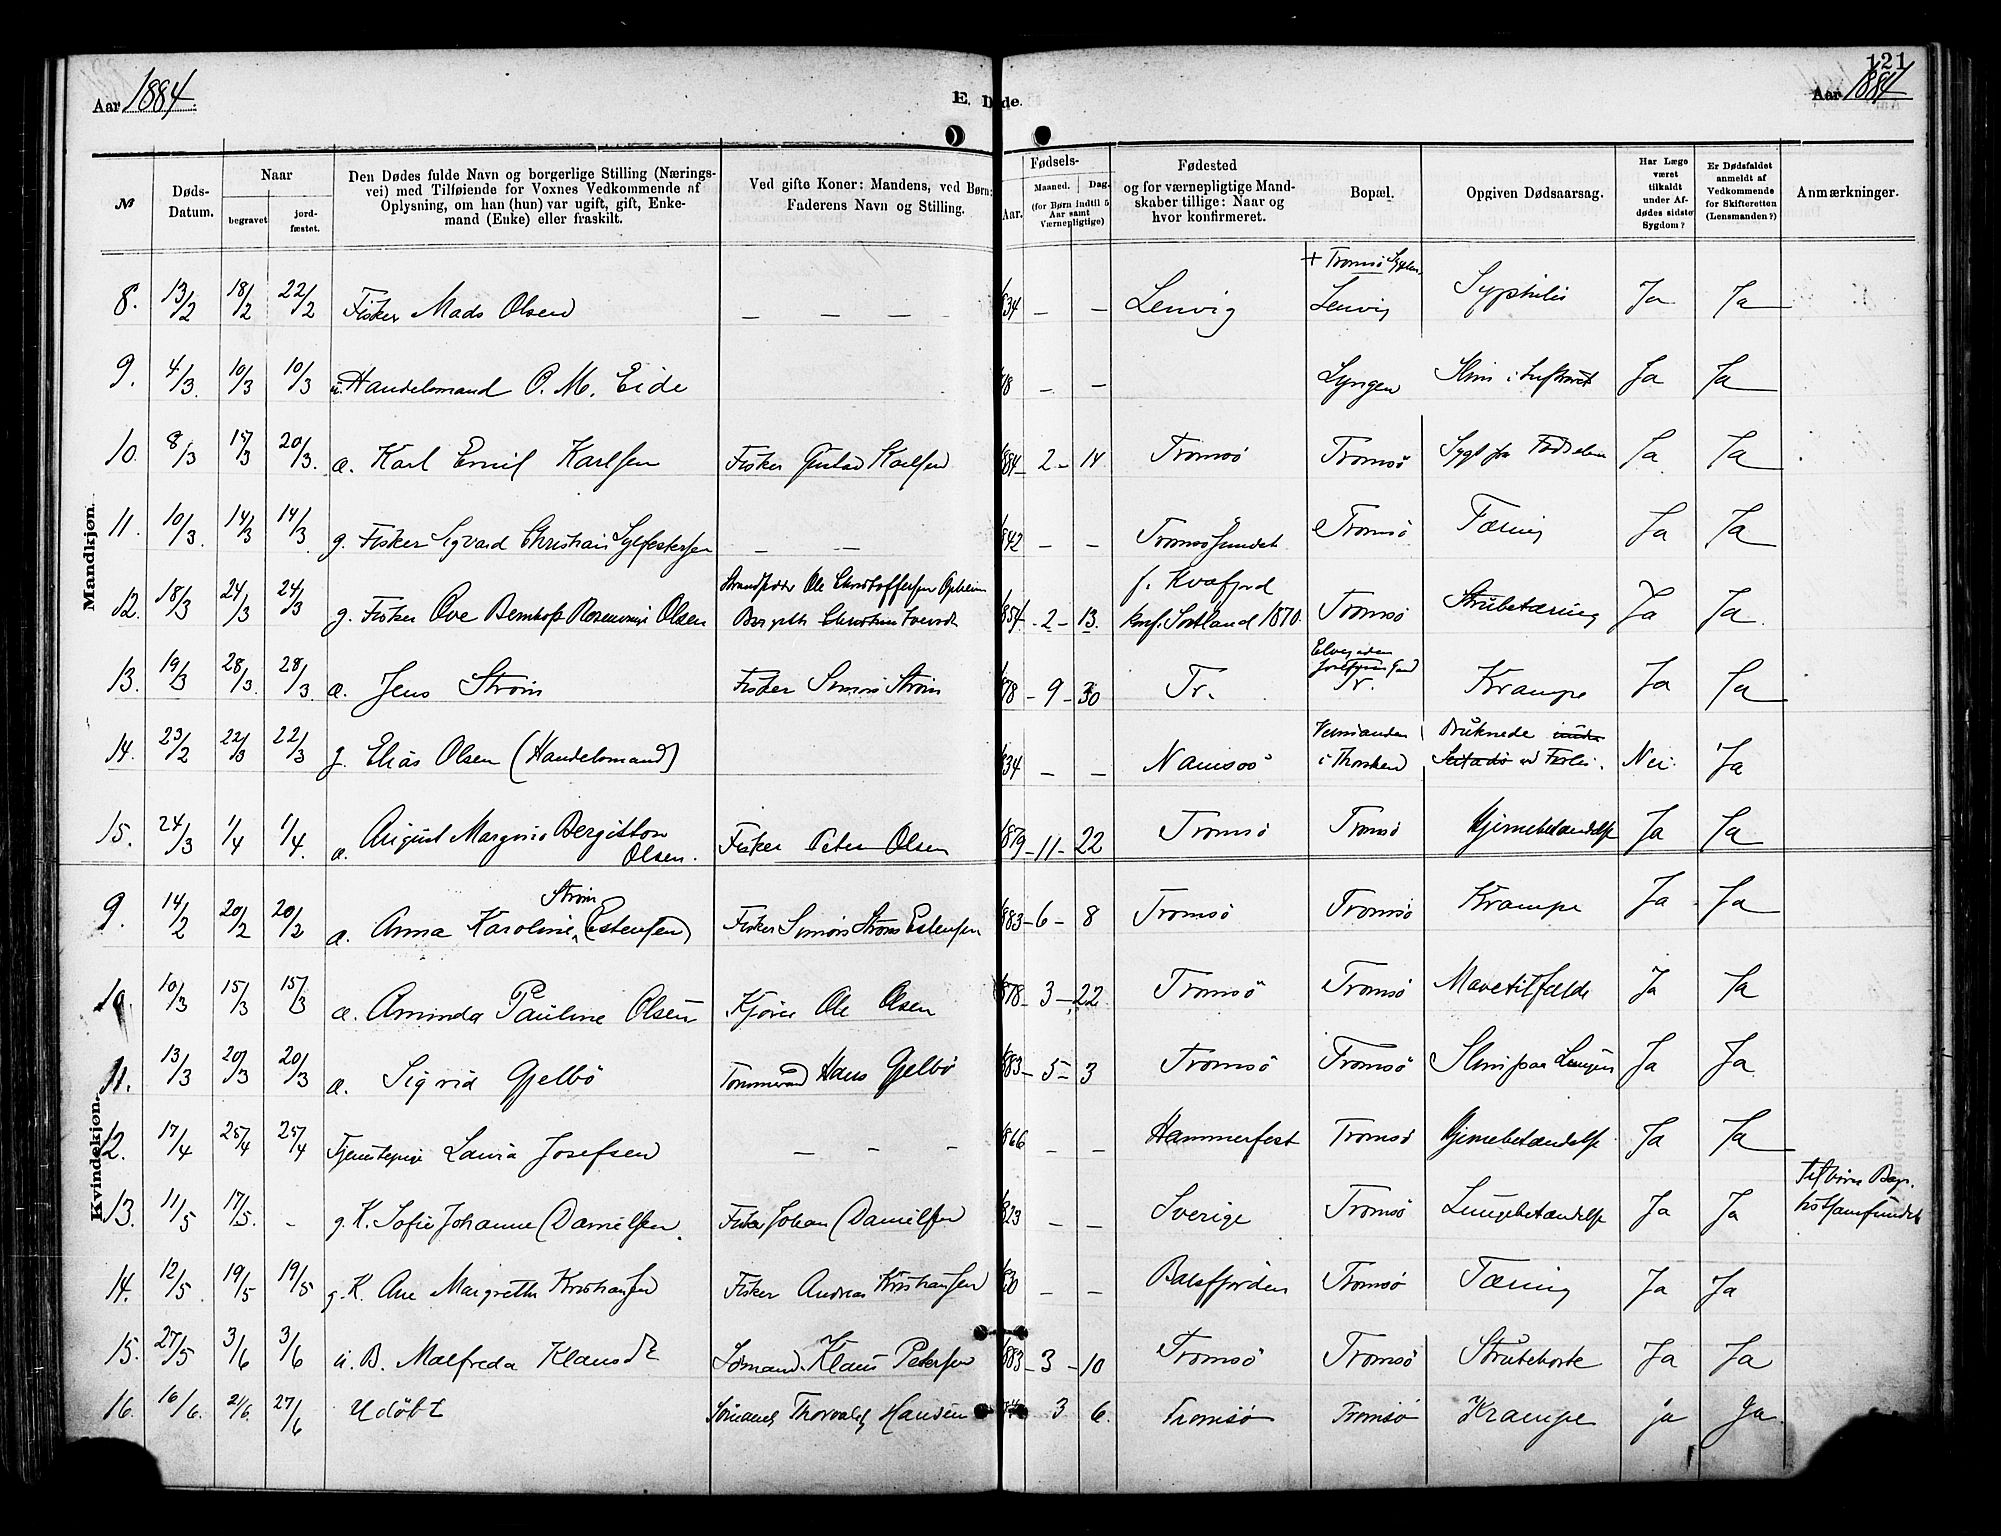 121
Aar 1884.
E. Døde.
Aar 1884
№
Døds-Datum.
Naar
begravet
jord-fæstet.
Den Dødes fulde Navn og borgerlige Stilling (Nærings-
vei) med Tilføiende for Voxnes Vedkommende af
Oplysning, om han (hun) var ugift, gift, Enke-
mand (Enke) eller fraskilt.
Ved gifte Koner: Mandens, ved Børn:
Faderens Navn og Stilling.
Fødsels-
Aar.
Maaned.
Dag.
(for Børn indtil 5
Aar samt
Værnepligtige)
Fødested
og for værnepligtige Mand-
skaber tillige: Naar og
hvor konfirmeret.
Bopæl.
Opgiven Dødsaarsag.
Har Læge
været
tilkaldt
under Af-
dødes sidste
Sygdom?
Er Dødsfaldet
anmeldt af
Vedkommende
for Skifteretten
(Lensmanden?)
Anmærkninger.
Mandkjøn.
+ Tromsö
8. 13/2 18/2 22/2 Fisker Mads Olsen — — — - 834 — — Lenvig Lenvig Syphilis Ja Ja
9. 4/3. 10/3 10/3 u. Handelsmand O. M. Eide 818 — — Lyngen Slim i Luftröret Ja Ja
10. 8/3 15/3 20/3. æ. Karl Emil Karlsen Fisker Gustav Karlsen 884 — 2 — 14 Tromsö Tromsö Sygl fra Fødselen Ja Ja
11. 10/3. 14/3 14/3 g. Fisker Sigvard Christian Sylfestersen — — 842 — — Tromsösundet Tromsö Tæring Ja Ja
Ole Christoffersen Opheim
f. Kvæfjord
12. 18/3 24/3 24/3 g. Fisker Ove Bernhoft Rosenvinge Olsen 854 — 2 — 13. konf. Sortland 1870. Tromsö Strubetæring Ja Ja.
Elvegaden
13. 19/3 28/3. 28/3 æ. Jens Ström Fisker Simon Ström 878 — 9 — 30 Tr. Tr. Krampe Ja Ja
Druknede
14. 23/2 22/3 22/3 g. Elias Olsen (Handelsmand) 834 — — Namsos i Thorsken Nei. Ja
15. 24/3 1/4 1/4. æ. August Margino Bergitton
Olsen. Fisker Peter Olsen 879 — 11 — 22 Tromsö Tromsö Hjernebetændelse Ja Ja
Kvindekjøn.
Ström
9. 14/2 20/2 20/2 æ. Anna Karoline (Estensen) Fisker Simon Ström Estensen 883 — 6 — 8 Tromsö Tromsö Krampe Ja Ja
10. 10/3 15/3 15/3 æ. Aminda Pauline Olsen Kjörer Ole Olsen 878 — 3 — 22. Tromsö Tromsö Mavetilfælde Ja Ja
11. 13/3 20/3 20/3 æ. Sigrid Gjelbö Tømmermand Hans Gjelbö 883 — 5 — 3 Tromsö Tromsö Slim paa Lungen Ja Ja
12. 17/4 25/4 25/4 Tjenestepige Laura Josefsen — — — 866 — — Hammerfest Tromsö Hjernebetændelse Ja Ja
13. 11/5 17/5. - g. K. Sofie Johanne (Danielsen. Fisker Johan (Danielsen 823 — — Sverige Tromsö Lungebetændelse Ja Ja tilhörer Bap-
tistsamfundet
14. 12/5. 19/5 19/5 g. K. Ane Margrethe Kristiansen Fisker Andreas Kristiansen 830 — — Balsfjorden Tromsö Tæring Ja Ja
15. 27/5 3/6 3/6 u. B. Malfreda Klausd Sömand Klaus Petersen 883 — 3 — 10 Tromsö Tromsö Strubehoste Ja Ja
16. 16/6. 21/6. 27/6 Udöbt Sömand Thorvald Hansen 3 6. Tromsö Tromsö Krampe ja Ja.